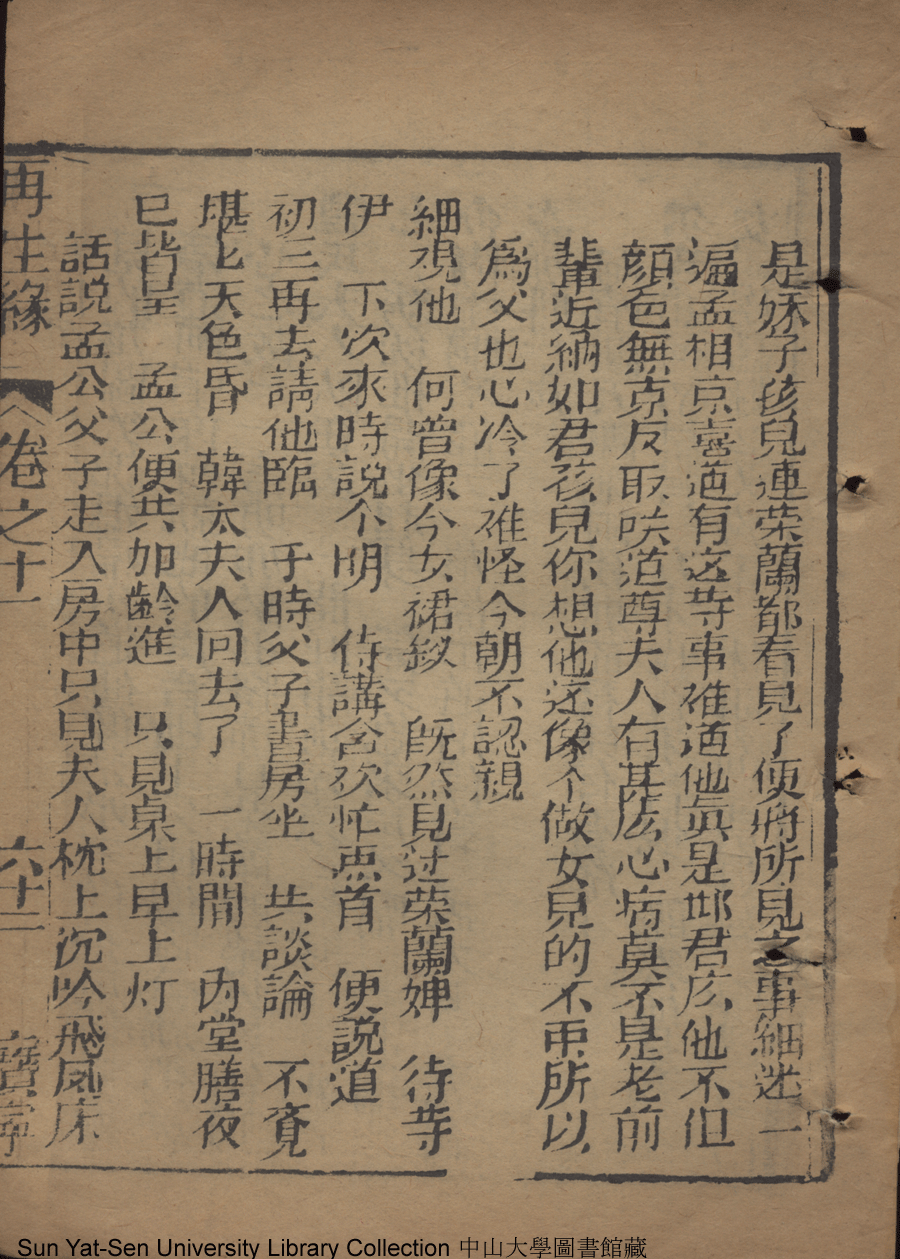 是妖子孩兒連荣蘭都看見了便將所見之事細述一
遍孟相京喜道有这等事难道他眞是郎君庅他不但
顔色無京反取咲道尊夫人有甚庅心病莫不是老前
軰近納如君孩兒你想他还像个做女兒的不甭所以
爲父也心冷了难怪今朝不認親
細覌他　何曾像个女裙釵　既然見过荣蘭婢　待等
伊　下次來時説个明　侍講含欢忙点首　便説道
初三再去請他臨　于時父子書房坐　共談論　不覺
堪匕天色昏　韓太夫人回去了　一時間　内堂膳夜
已皆呈　孟公便共加齡進　只見桌上早上灯
話説孟公父子走入房中只見夫人枕上沉吟飛鳳床
再生緣　卷之十一　六十二　寶寧
Sun Yat-Sen University Library Collection 中山大學圖書館藏